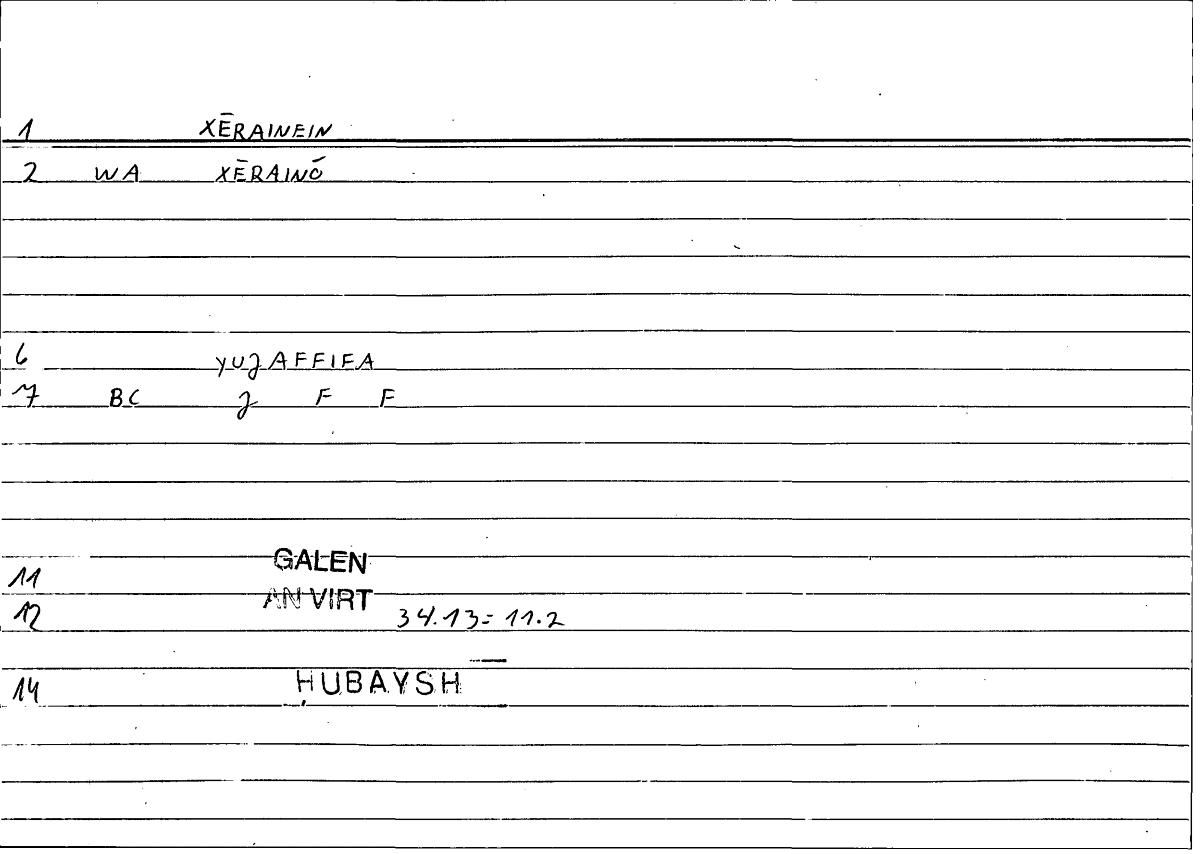 1 XĒRAINEIN
2 WA XĒRAINŌ
6 YUJAFFIFA
7 BC J F F
11 GALEN
12 AN VIRT 34.13=11.2
14 ḤUBAYSH